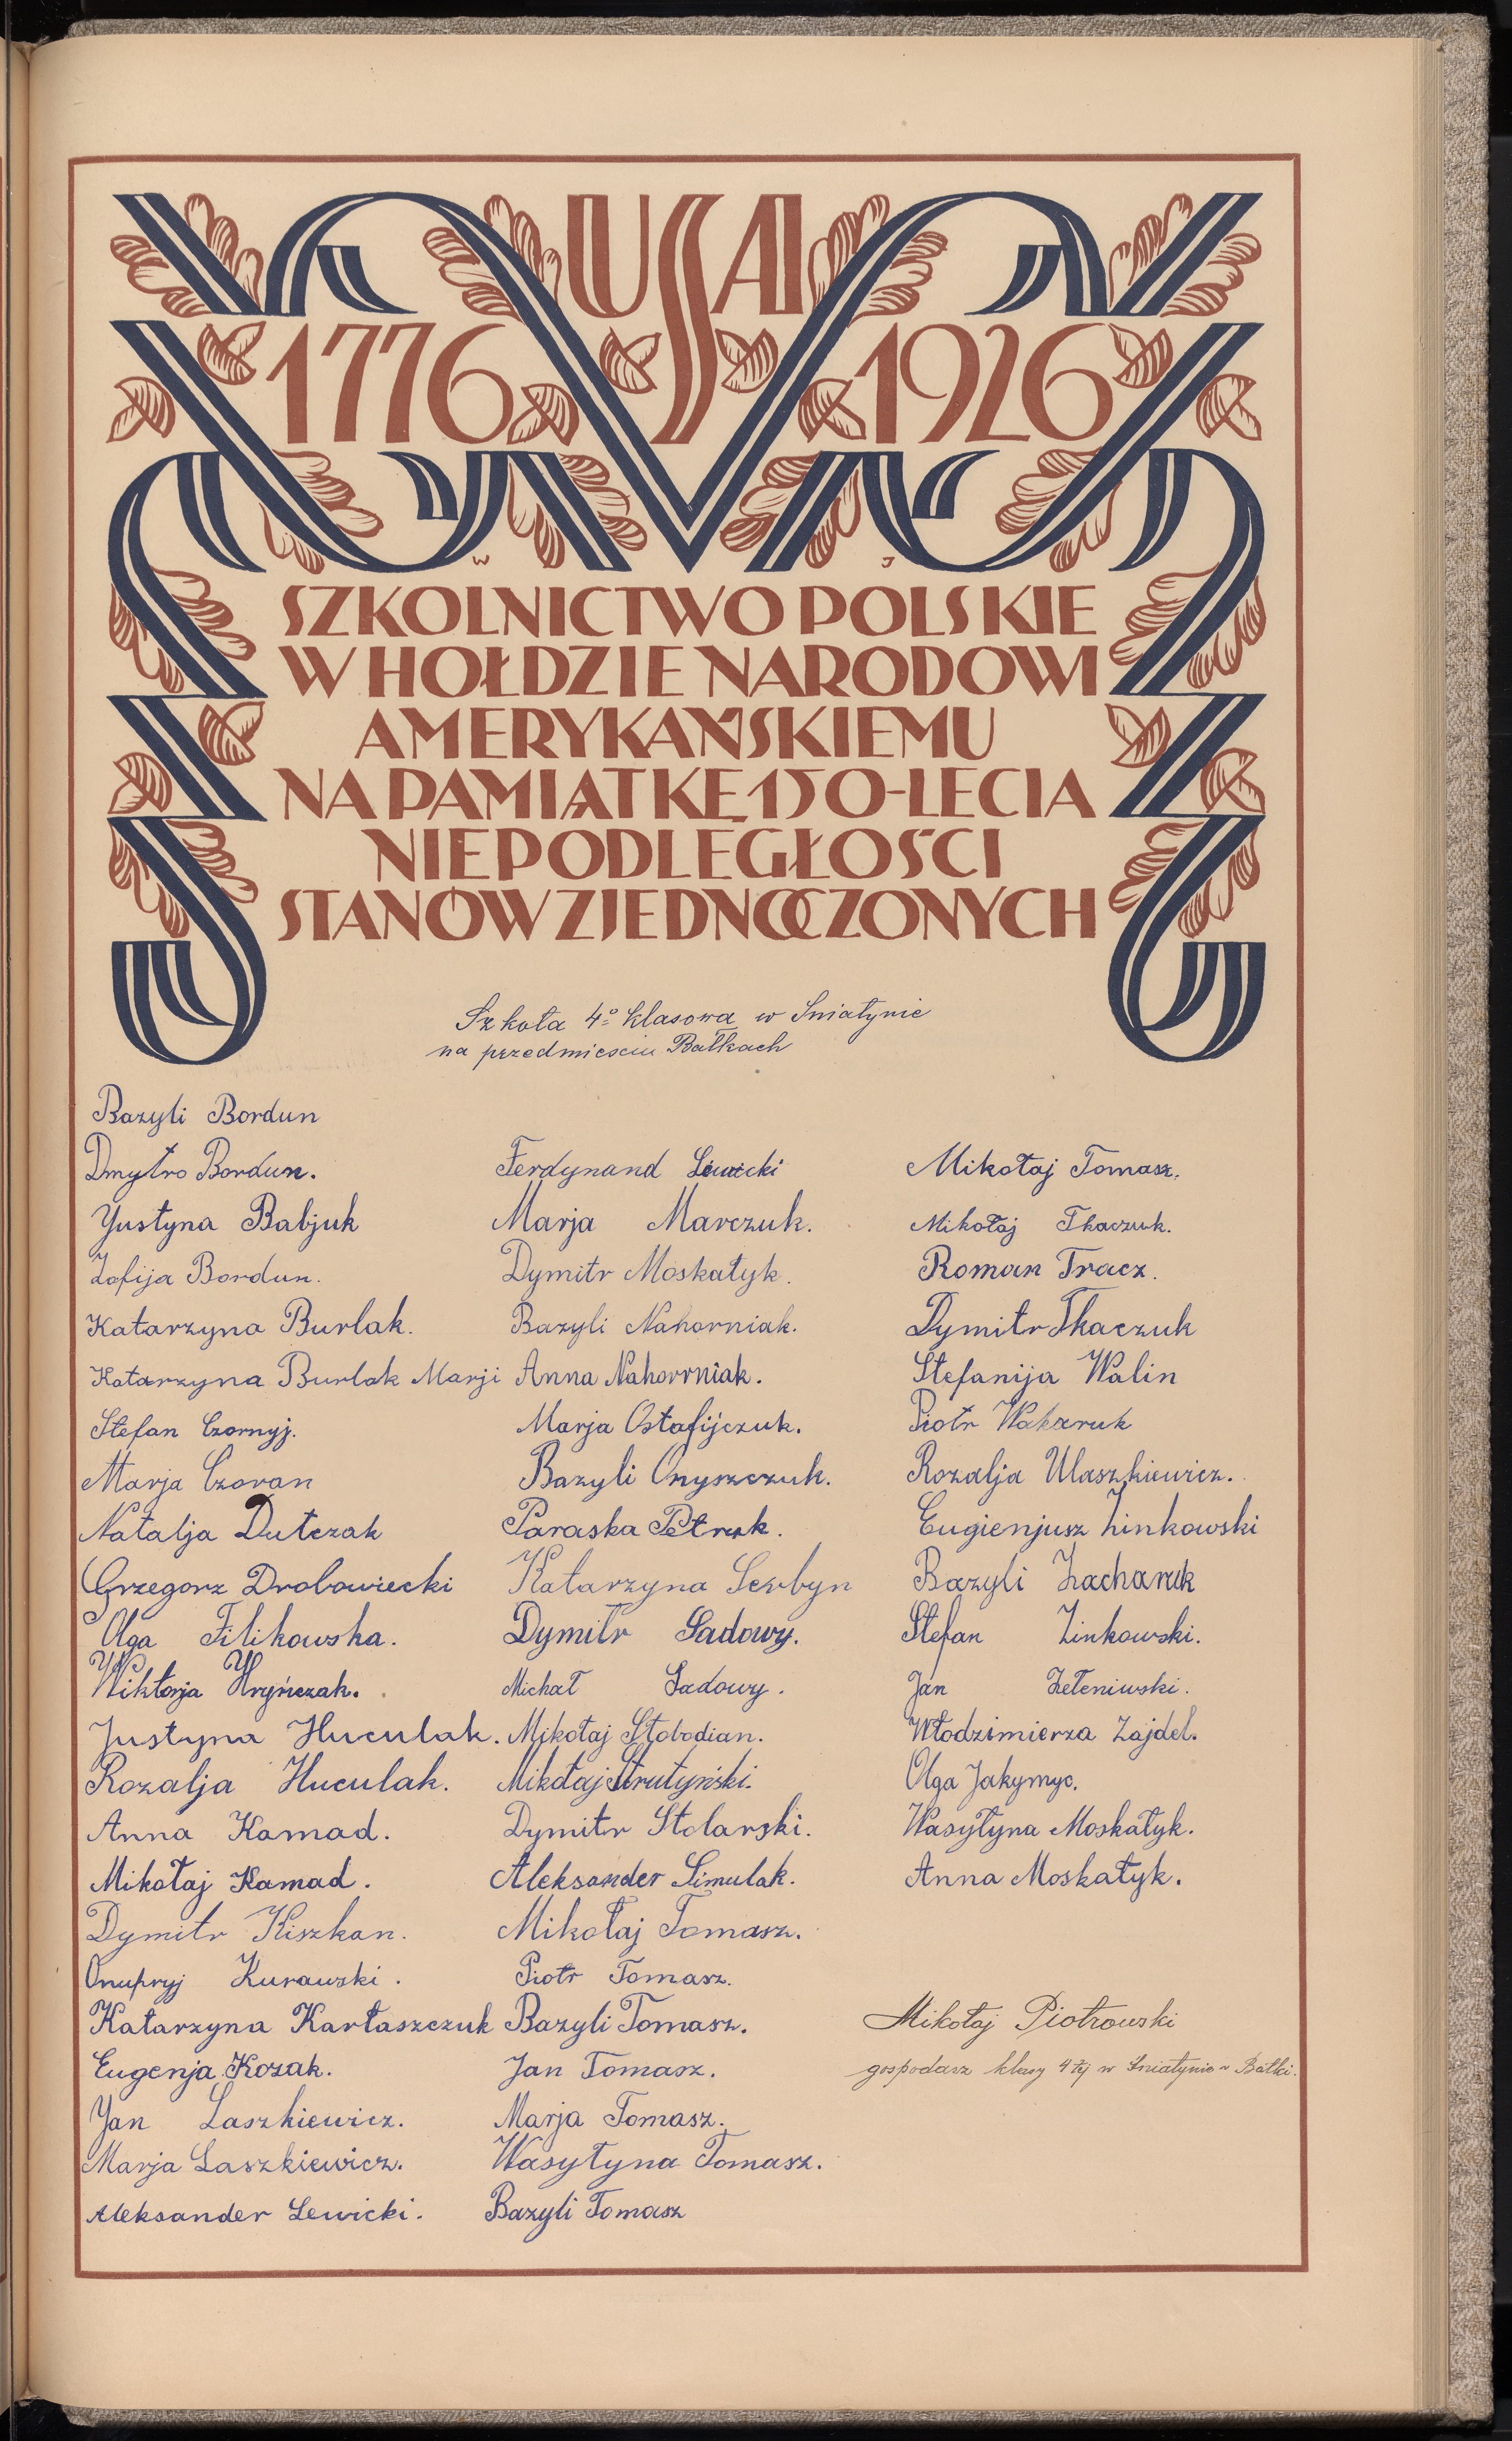 USA
1776 1926
W J
SZKOLNICTWO POLSKIE
W HOŁDZIE NARODOWI
AMERYKAŃSKIEMU
NA PAMIĄTKĘ 150-LECIA
NIEPODLEGŁOŚCI
STANÓW ZJEDNOCZONYCH
Szkoła 4º klasowa w Sniatynie
na przedmiesciu Bałkach
Bazyli Bordun
Dmytro Bordun.
Yustyna Babjuk
Zofija Bordun.
Katarzyna Burlak.
Katarzyna Burlak Marji
Stefan Czornyj.
Marja Czoran
Natalja Dutczak
Grzegorz Drobowiecki
Olga Filikowska.
Wiktorja Hryńczak.
Justyna Huculak.
Rozalja Huculak.
Anna Kamad.
Mikołaj Kamad.
Dymitr Kiszkan.
Onupryj Kurawski.
Katarzyna Kartaszczuk
Eugenja Kozak.
Yan Laszkiewicz.
Marja Laszkiewicz.
Aleksander Lewicki.
Ferdynand Lewicki
Marja Marczuk.
Dymitr Moskałyk.
Bazyli Nahorniak.
Anna Nahorniak.
Marja Ostafijczuk.
Bazyli Onyszczuk.
Paraska Petruk.
Katarzyna Serbyn
Dymitr Sadowy.
Michał Sadowy.
Mikołaj Słobodian.
Mikołaj Strutyński.
Dymitr Stolarski.
Aleksander Simulak.
Mikołaj Tomasz.
Piotr Tomasz.
Bazyli Tomasz.
Jan Tomasz.
Marja Tomasz.
Wasyłyna Tomasz.
Bazyli Tomasz
Mikołaj Tomasz.
Mikołaj Tkaczuk.
Roman Tracz.
Dymitr Tkaczuk
Stefanija Walin
Piotr Wakaruk
Rozalja Ulaszkiewicz.
Eugienjusz Zinkowski
Bazyli Zacharuk
Stefan Zinkowski.
Jan Zełeniwski.
Włodzimierza Zajdel.
Olga Jakymyc.
Wasyłyna Moskałyk.
Anna Moskałyk.
Mikołaj Piotrowski
gospodarz klasy 4tej w Śniatynie ~ Bałki.